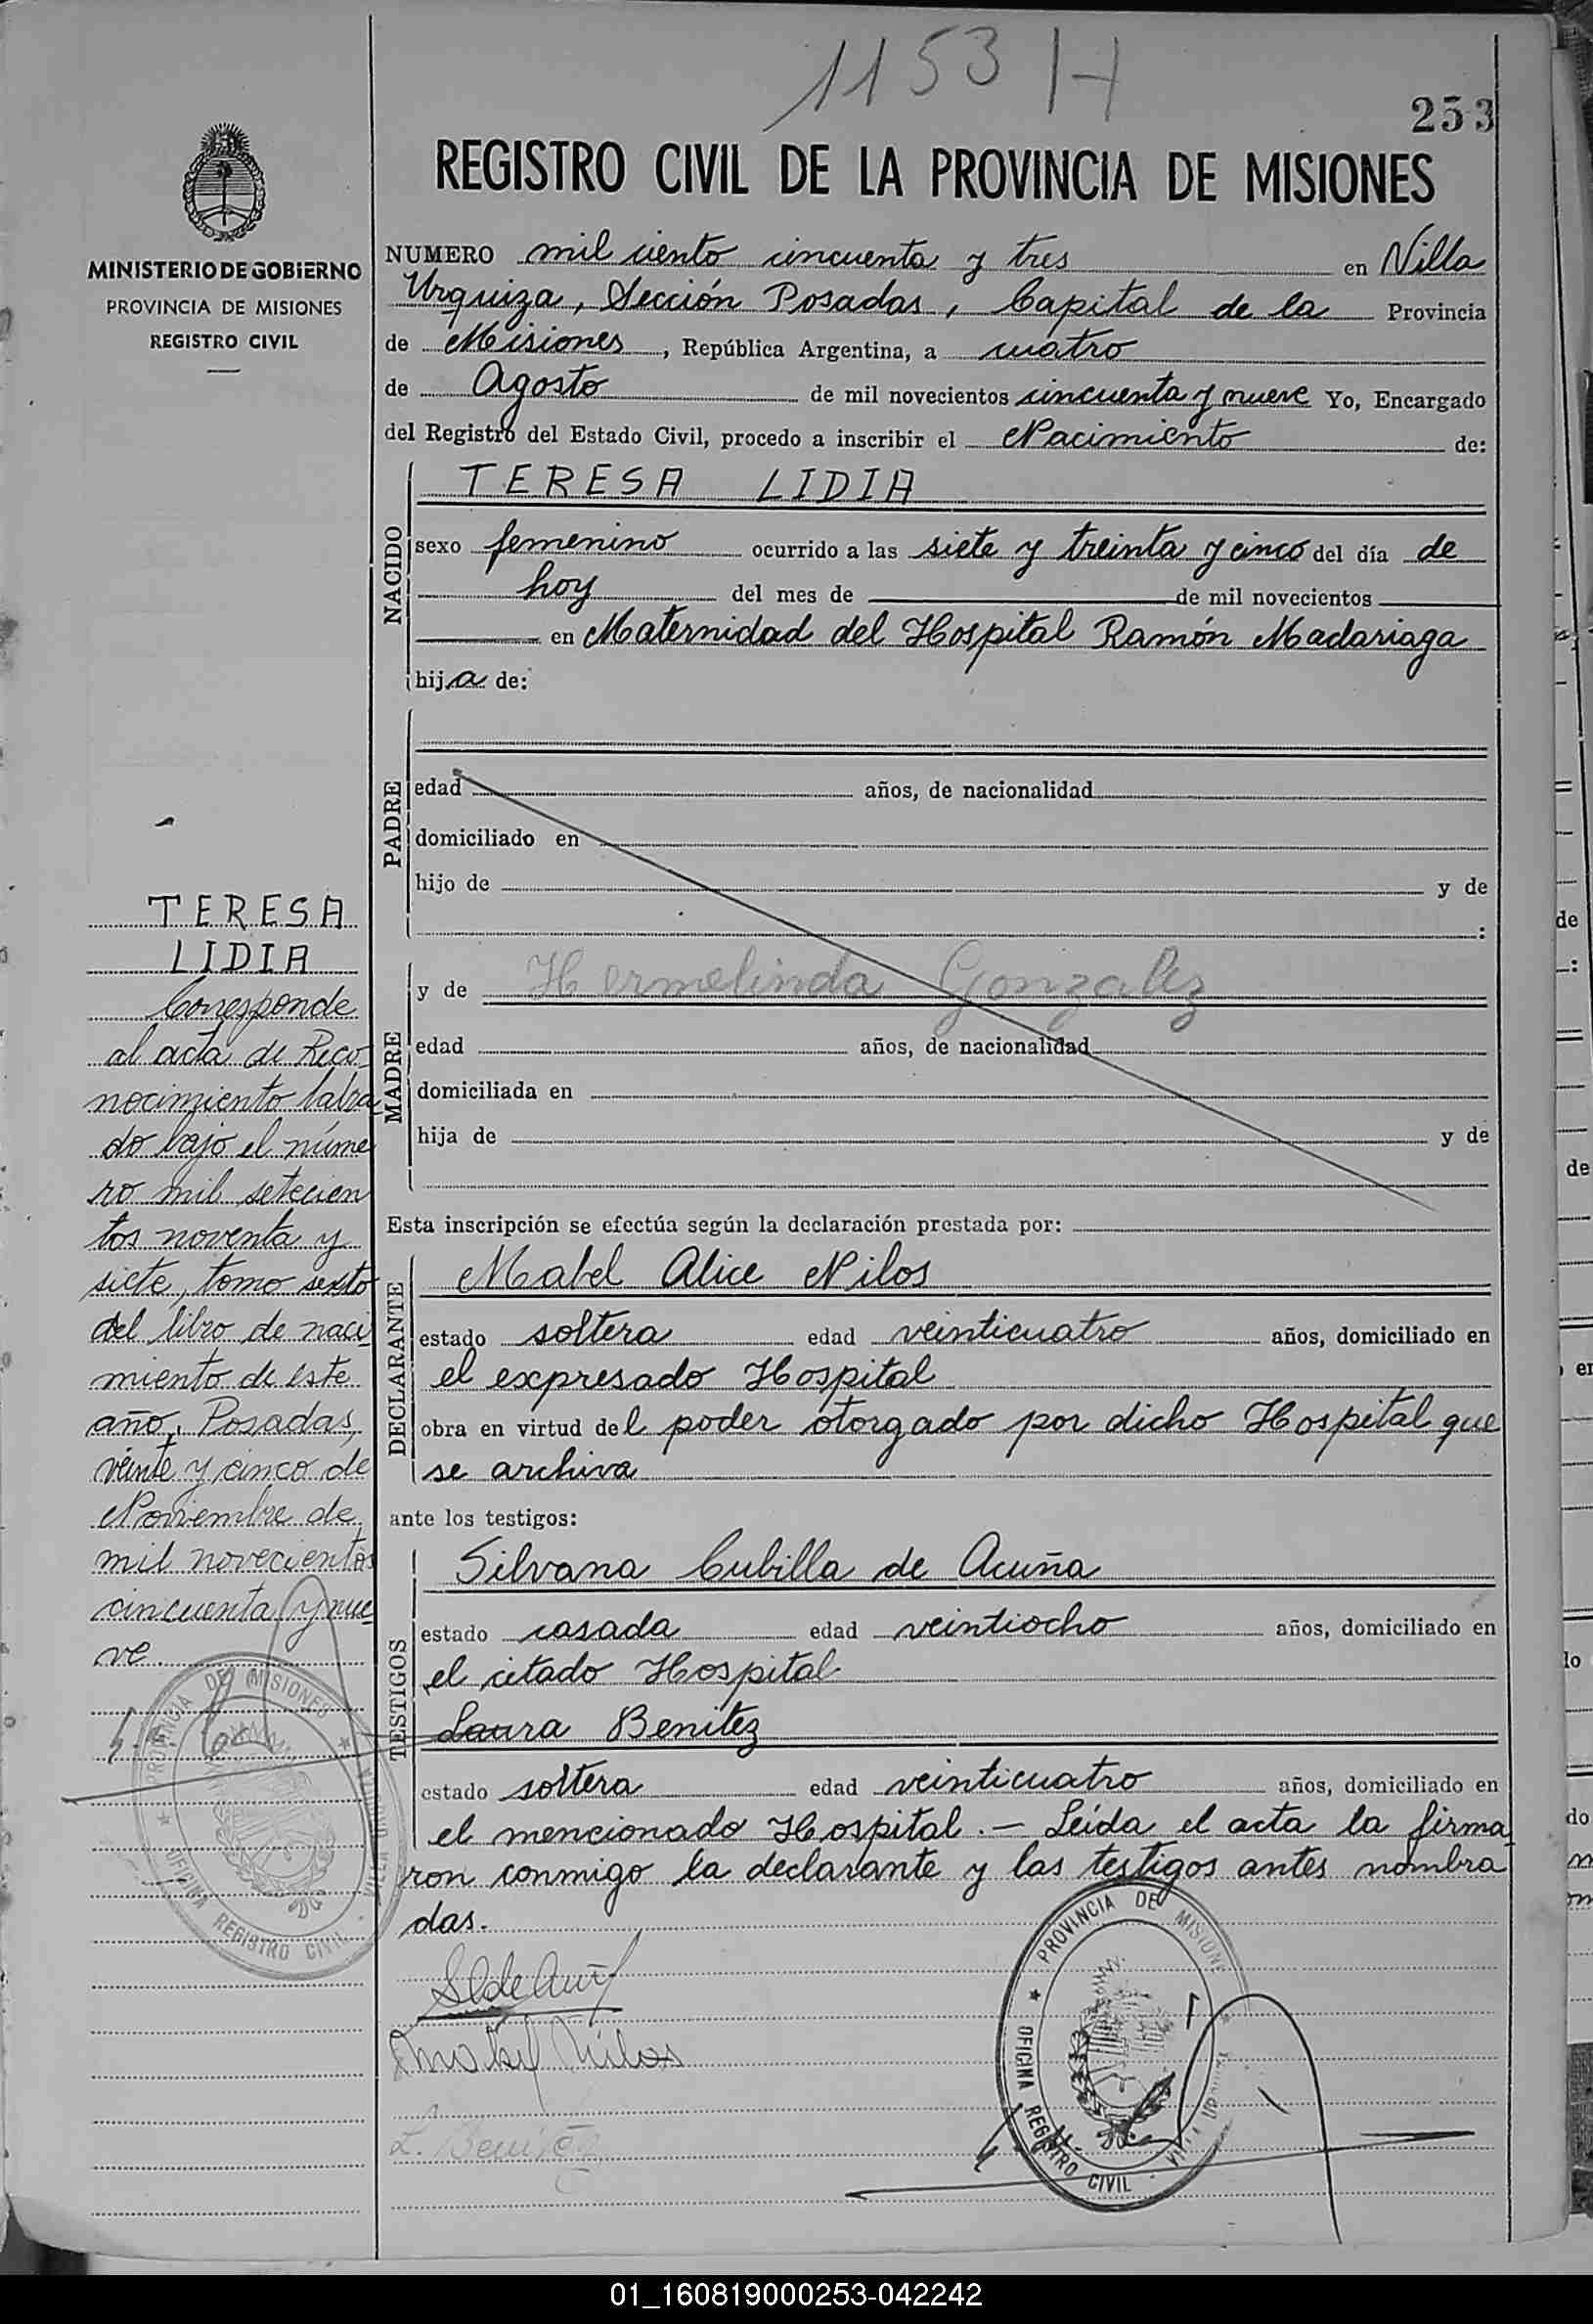 1153 H
253
REGISTRO CIVIL DE LA PROVINCIA DE MISIONES
MINISTERIO DE GOBIERNO
PROVINCIA DE MISIONES
REGISTRO CIVIL
NUMERO mil ciento cincuenta y tres en Villa
Urquiza, Sección Posadas, Capital de la Provincia
de Misiones, República Argentina, a cuatro
de Agosto de mil novecientos cincuenta y nueve Yo, Encargado
del Registro del Estado Civil, procedo a inscribir el Nacimiento de:
NACIDO
TERESA LIDIA
sexo femenino ocurrido a las siete y treinta y cinco del día de
hoy del mes de de mil novecientos
en Maternidad del Hospital Ramón Madariaga
hija de:
PADRE
edad años, de nacionalidad
domiciliado en
hijo de y de
:
MADRE
y de Hermelinda Gonzalez
edad años, de nacionalidad
domiciliada en
hija de y de
Esta inscripción se efectúa según la declaración prestada por:
DECLARANTE
Mabel Alice Nilos
estado soltera edad veinticuatro años, domiciliado en
el expresado Hospital
obra en virtud del poder otorgado por dicho Hospital que
se archiva
ante los testigos:
TESTIGOS
Silvana Cubilla de Acuña
estado casada edad veintiocho años, domiciliado en
el citado Hospital
Laura Benitez
estado soltera edad veinticuatro años, domiciliado en
el mencionado Hospital.— Leída el acta la firma
ron conmigo la declarante y las testigos antes nombra
das.
Mabel Nilos
L. Benitez
PROVINCIA DE MISIONES
OFICINA REGISTRO CIVIL
TERESA
LIDIA
Corresponde
al acta de Reco-
nocimiento labra
do bajo el núme
ro mil setecien
tos noventa y
siete, tomo sexto
del libro de naci
miento de este
año. Posadas,
veinte y cinco de
Noviembre de
mil novecientos
cincuenta y nue
ve.
PROVINCIA DE MISIONES
OFICINA REGISTRO CIVIL
01_160819000253-042242